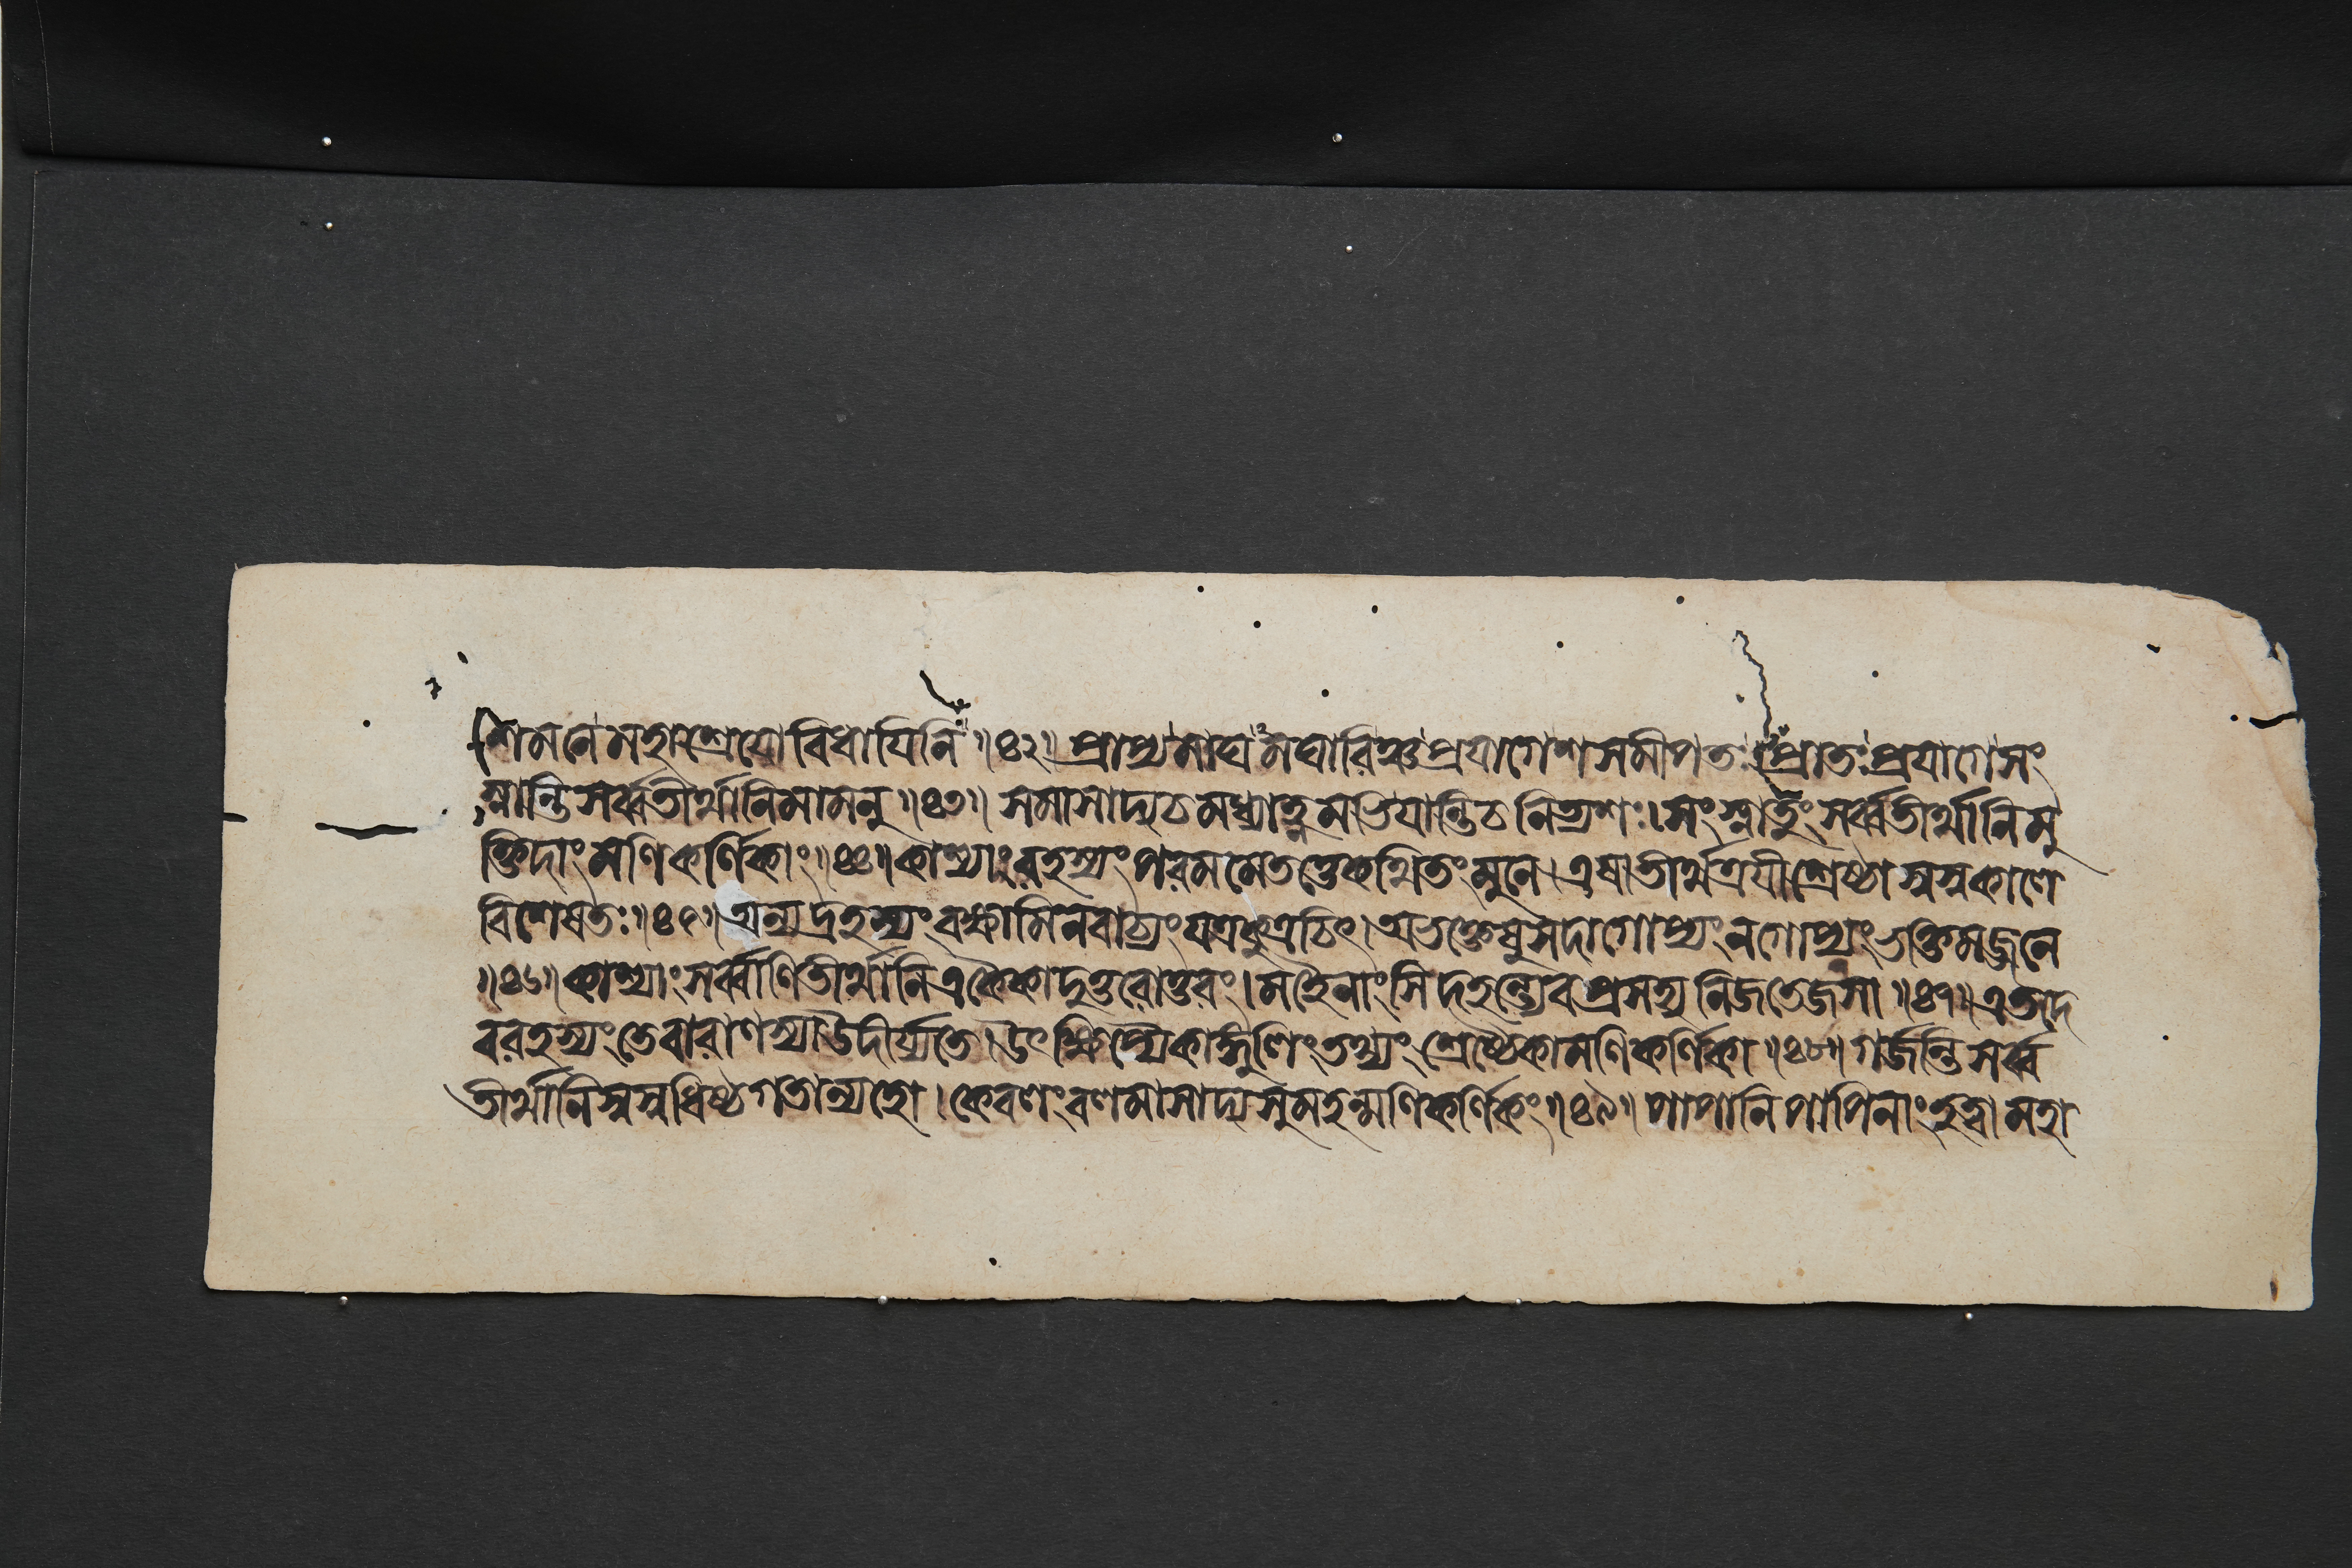 শমনে মহাশ্রেয়োবিধায়িনি ॥৪২॥ প্রাপ্য মাঘমঘারিঞ্চ প্রয়াগেশসমীপতঃ। প্রাতঃ প্রয়াগে সং
স্নান্তি সর্ব্বতীর্থানি মামনু ॥৪৩॥ সমাসাদ্য চ মধ্যাহ্নমভিয়ান্তি চ নিত্যশঃ। সংস্নাতুং সর্ব্বতীর্থানি মু
ক্তিদাং মণিকর্ণিকাং ॥৪৪॥ কাশ্যাং রহস্যং পরমমেতত্তে কথিতং মুনে। এষা তীর্থত্রয়ী শ্রেষ্ঠা স্বস্বকালে
বিশেষতঃ ॥৪৫॥ অন্যদ্রহস্যং বক্ষ্যামি ন বাচ্যং যত্রকুত্রচিৎ। অভক্তেষু সদা গোপ্যং ন গোপ্যং ভক্তিমজ্জনে
॥৪৬॥ কাশ্যাং সর্ব্বাণি তীর্থানি একৈকাদুত্তরোত্তরং। মহৈনাংসি দহন্ত্যেব প্রসহ্য নিজতেজসা ॥৪৭॥ এতদে
ব রহস্যং তে বারাণস্যা উদীর্য্যতে। উৎক্ষিপ্যৈকাঙ্গুলিং তথ্যং শ্রেষ্ঠৈকা মণিকর্ণিকা ॥৪৮॥ গর্জন্তি সর্ব্ব
তীর্থানি স্বস্বধিষ্ণ্যগতান্যহো। কেবলং বলমাসাদ্য সুমহন্মণিকর্ণিকং ॥৪৯॥ পাপানি পাপিনাং হত্বা মহা